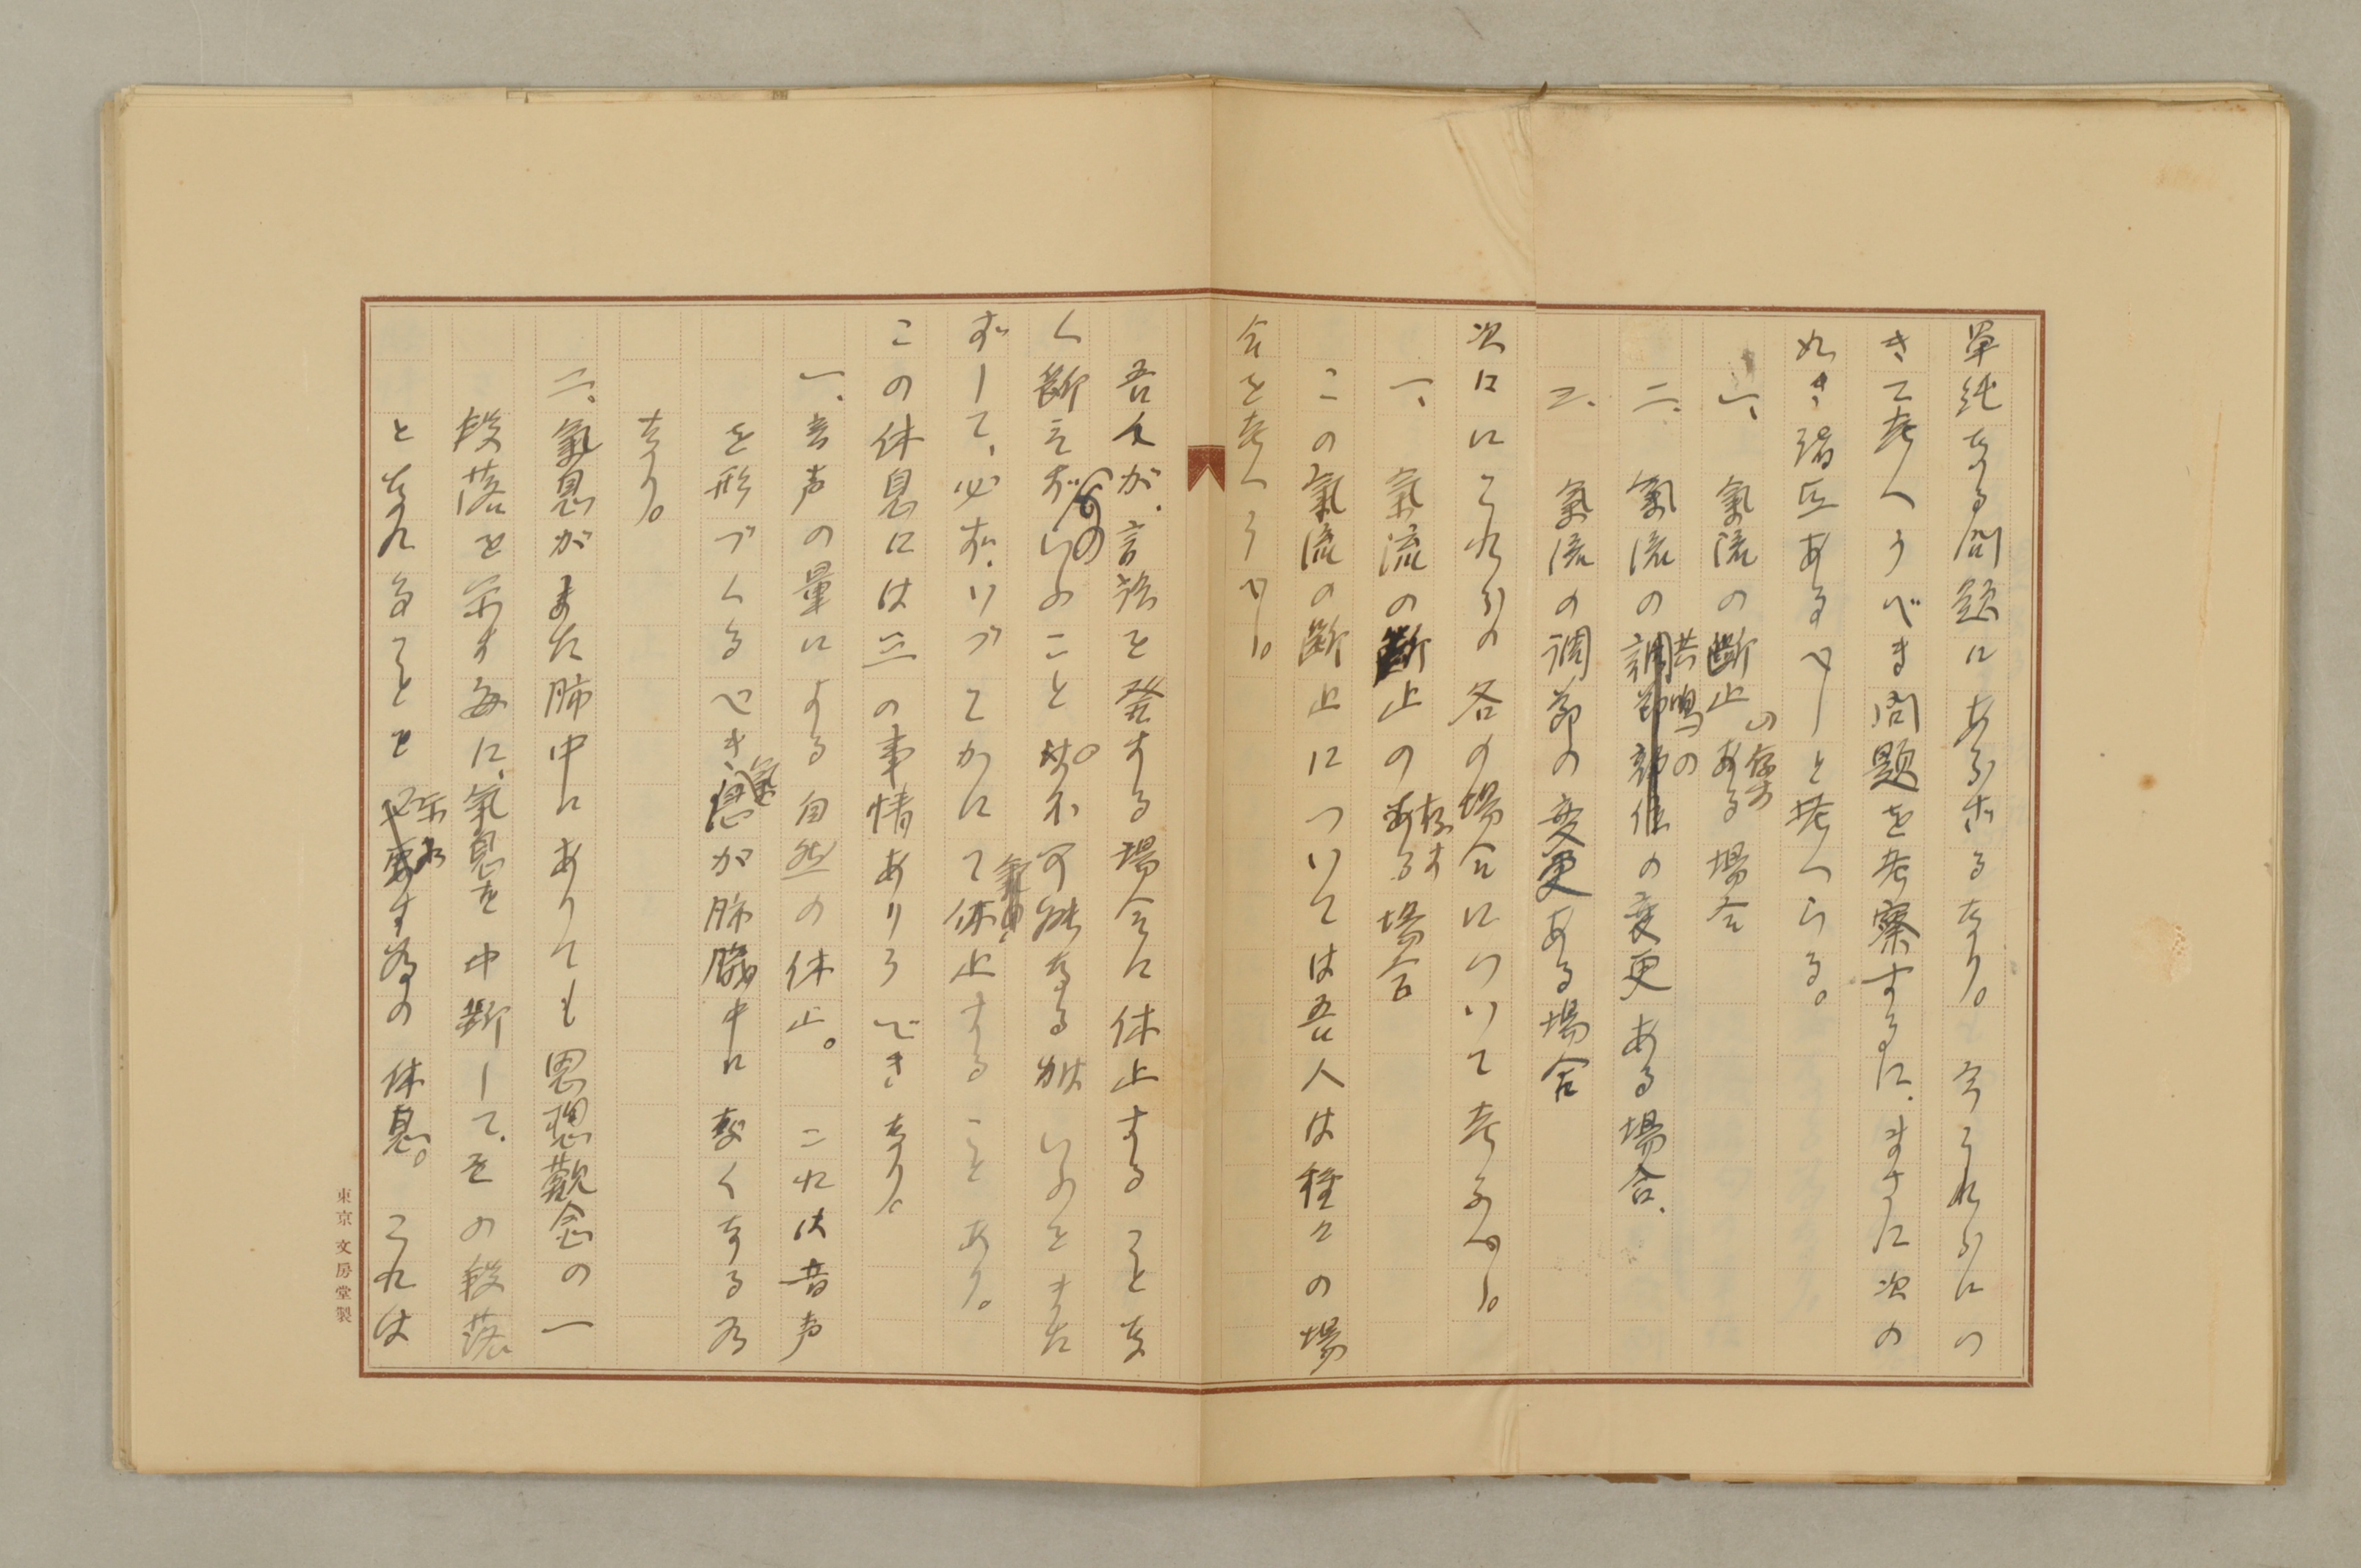 単純なる問題にあらざるなり。今これらにつ
きて考へうべき問題を考察するに、まさに次の
如き諸点あるべしと考へらる。
一、氣流の斷止の存する場合
二、氣流の共鳴の位の変更ある場合、
三、氣流の調節の変更ある場合
次にこれらの各の場合について考ふべし。
一、氣流の斷止の存する場合
この氣流の斷止については吾人は種々の場
合を考へうべし。
吾人が、言語を発する場合に休止することな
く斷えずいふことの不可能なるは いふをまた
ずして、必ず、いづこかにて氣息、休止することあり。
この休息には三の事情ありうべきなり。
一、音声の量による自然の休止。 これは音声
を形づくるべき氣息が肺臓中になくなる為
なり。
二、氣息がまた肺中にありても思想觀念の一
段落を示す毎に、氣息を中斷して、その段落
となれることを示す為の休息。これは
東京 文房堂製